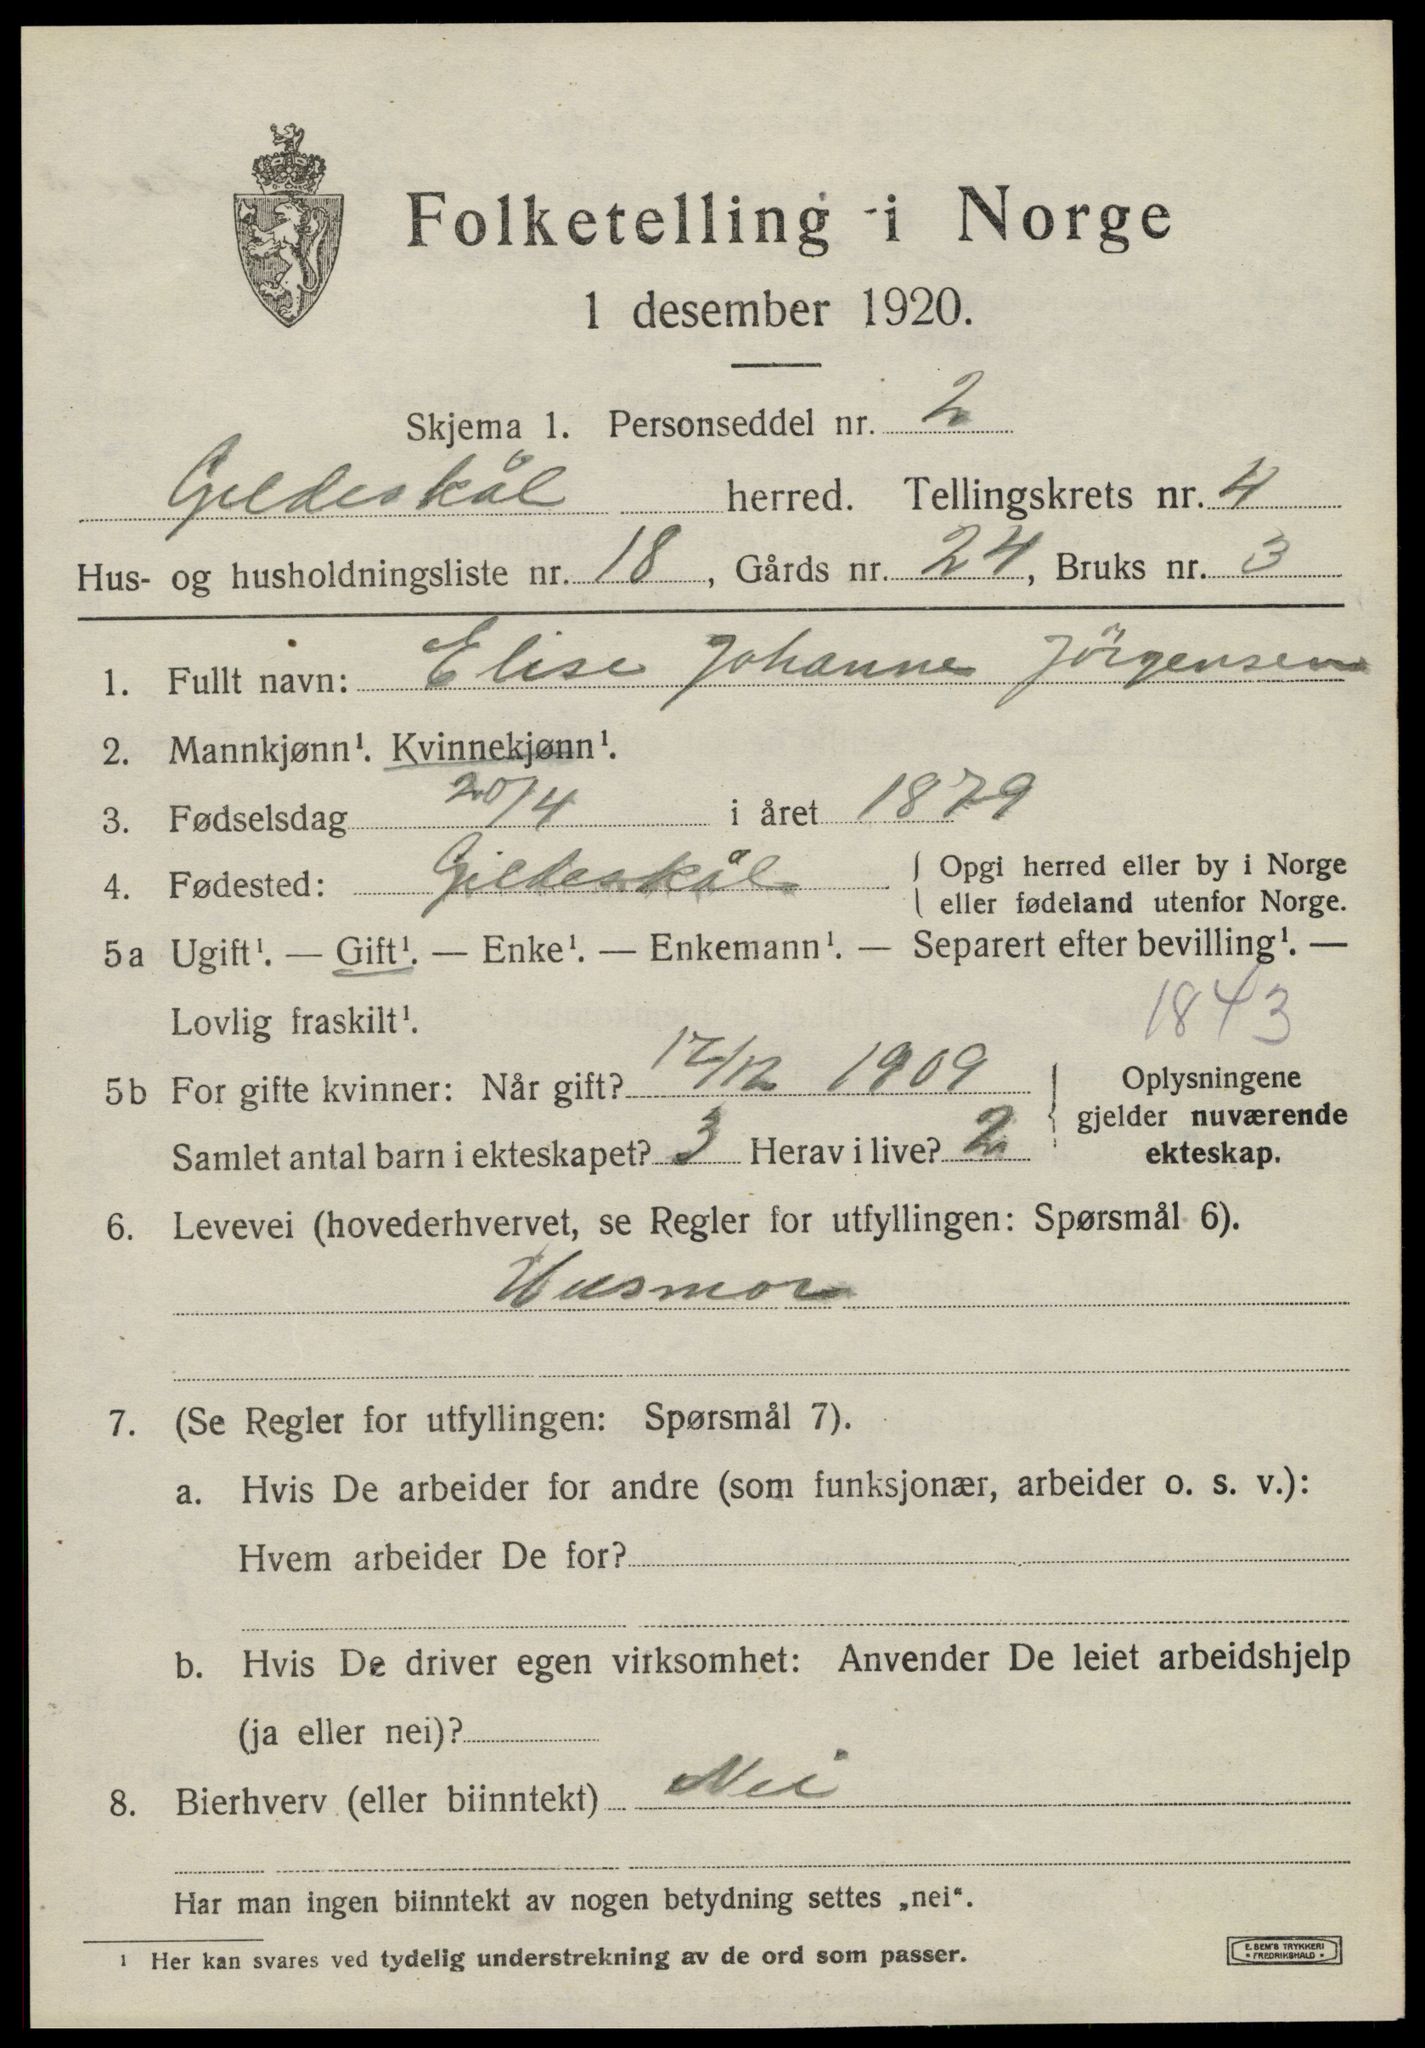 Folketelling i Norge
1 desember 1920.
Skjema 1. Personseddel nr. 2
Gildeskål herred. Tellingskrets nr. 4
Hus- og husholdningsliste nr. 18, Gårds nr. 24, Bruks nr. 3
1. Fullt navn: Elise Johanne Jörgensen
2. Mannkjønn¹. Kvinnekjønn¹.
3. Fødselsdag 20/4 i året 1879
4. Fødested: Gildeskål { Opgi herred eller by i Norge
eller fødeland utenfor Norge.
5a Ugift¹. — Gift¹. — Enke¹. — Enkemann¹. — Separert efter bevilling¹. —
Lovlig fraskilt¹.
1843
5b For gifte kvinner: Når gift? 12/12 1909
Samlet antal barn i ekteskapet? 3 Herav i live? 2
Oplysningene
gjelder nuværende
ekteskap.
6. Levevei (hovederhvervet, se Regler for utfyllingen: Spørsmål 6).
Husmor
7. (Se Regler for utfyllingen: Spørsmål 7).
a. Hvis De arbeider for andre (som funksjonær, arbeider o. s. v.):
Hvem arbeider De for?
b. Hvis De driver egen virksomhet: Anvender De leiet arbeidshjelp
(ja eller nei)?
8. Bierhverv (eller biinntekt) Nei
Har man ingen biinntekt av nogen betydning settes „nei“.
¹ Her kan svares ved tydelig understrekning av de ord som passer.
E. SEM'S TRYKKERI
* FREDRIKSHALD *